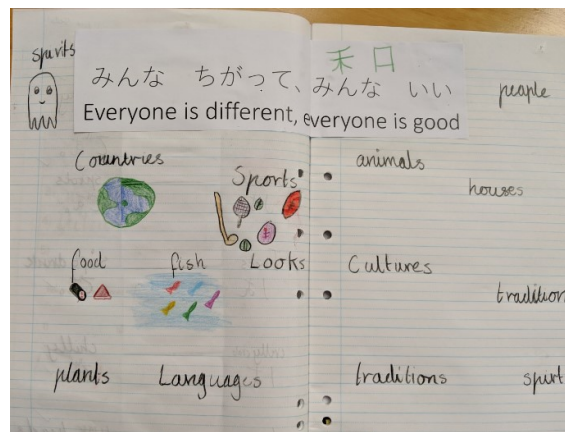 spirits
禾口
みんな ちがって、みんな いい
Everyone is different, everyone is good
people
Countries
Sports
animals
houses
food
fish
Looks
Cultures
tradition
plants
Languages
traditions
spirit